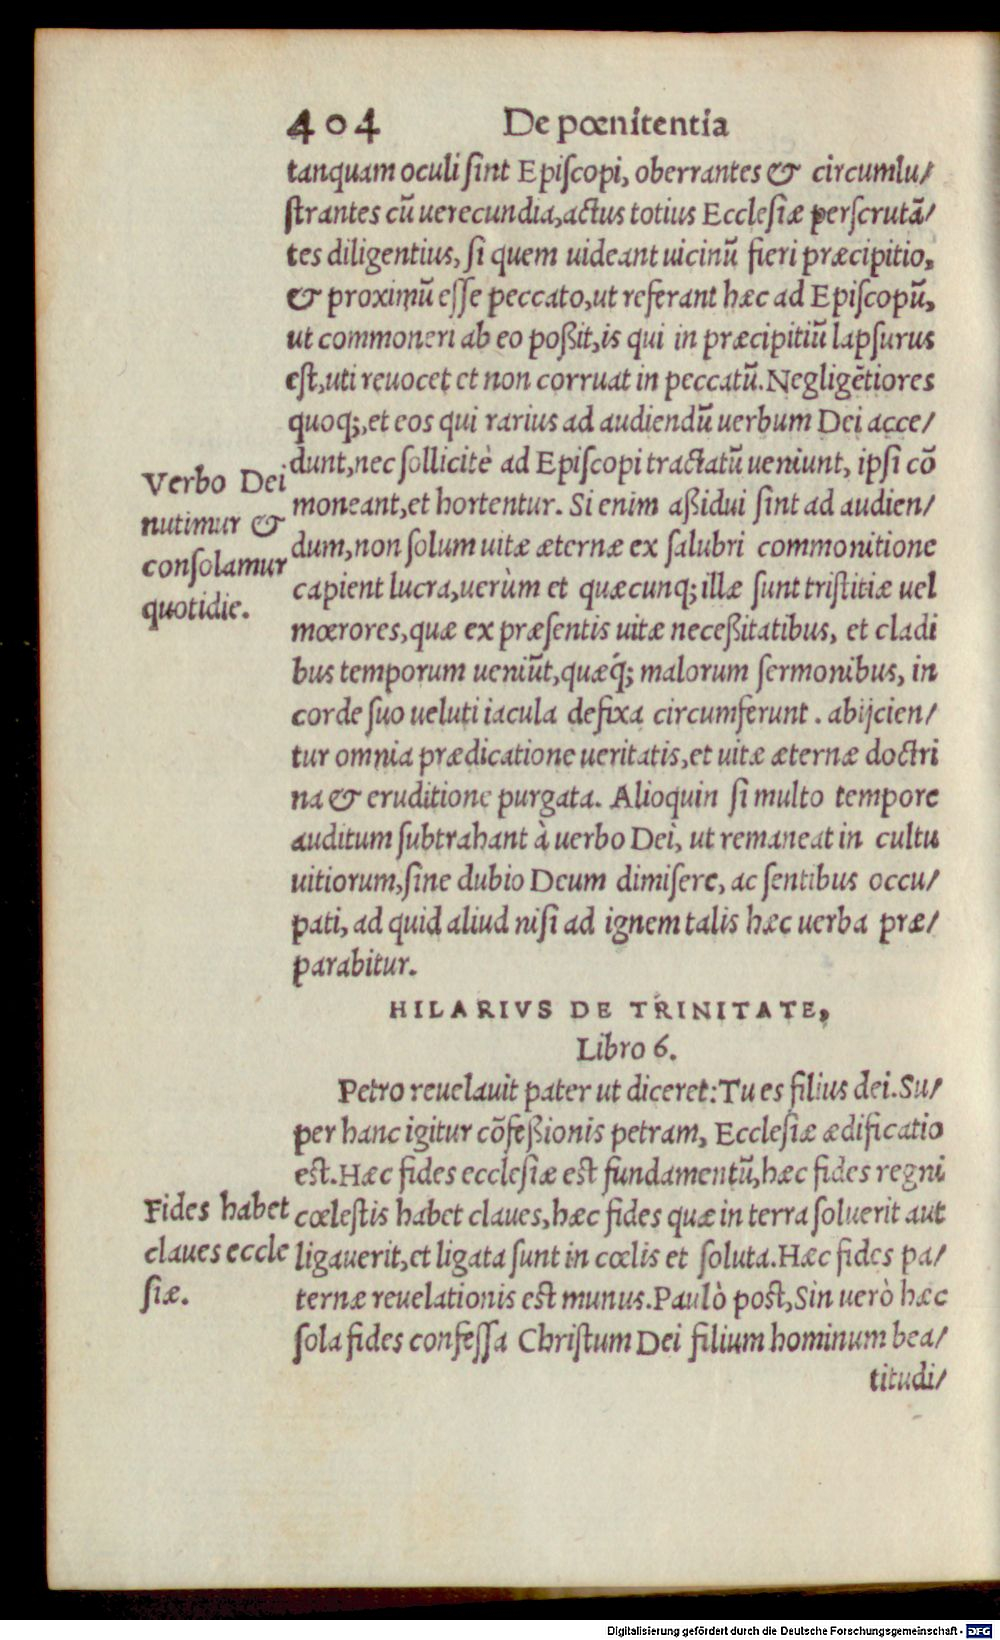 404 De pœnitentia
tanquam oculi ſint Epiſcopi, oberrantes & circumlu/
ſtrantes cū uerecundia, actus totius Eccleſiæ perſcrutā/
tes diligentius, ſi quem uideant uicinū fieri præcipitio,
& proximū eſſe peccato, ut referant hæc ad Epiſcopū,
ut commoneri ab eo poßit, is qui in præcipitiū lapſurus
eſt, uti reuocet et non corruat in peccatū. Negligētiores
quoq;, et eos qui rarius ad audiendū uerbum Dei acce/
dunt, nec ſollicitè ad Epiſcopi tractatū ueniunt, ipſi cō
moneant, et hortentur. Si enim aßidui ſint ad audien/
dum, non ſolum uitæ æternæ ex ſalubri commonitione
capient lucra, uerùm et quæcunq; illæ ſunt triſtitiæ uel
mœrores, quæ ex præſentis uitæ neceßitatibus, et cladi
bus temporum ueniūt, quæq́; malorum ſermonibus, in
corde ſuo ueluti iacula defixa circumferunt. abijcien/
tur omnia prædicatione ueritatis, et uitæ æternæ doctri
na & eruditione purgata. Alioquin ſi multo tempore
auditum ſubtrahant à uerbo Dei, ut remaneat in cultu
uitiorum, ſine dubio Deum dimiſere, ac ſentibus occu/
pati, ad quid aliud niſi ad ignem talis hæc uerba præ/
parabitur.
Verbo Dei
nutimur &
conſolamur
quotidie.
HILARIVS DE TRINITATE,
Libro 6.
Petro reuelauit pater ut diceret: Tu es filius dei. Su/
per hanc igitur cōfeßionis petram, Eccleſiæ ædificatio
est. Hæc fides eccleſiæ est fundamentū, hæc fides regni
cœleſtis habet claues, hæc fides quæ in terra ſoluerit aut
ligauerit, et ligata ſunt in cœlis et ſoluta. Hæc fides pa/
ternæ reuelationis est munus. Paulò post, Sin uerò hæc
ſola fides confeſſa Chriſtum Dei filium hominum bea/
titudi/
Fides habet
claues eccle
ſiæ.
Digitalisierung gefördert durch die Deutsche Forschungsgemeinschaft - DFG